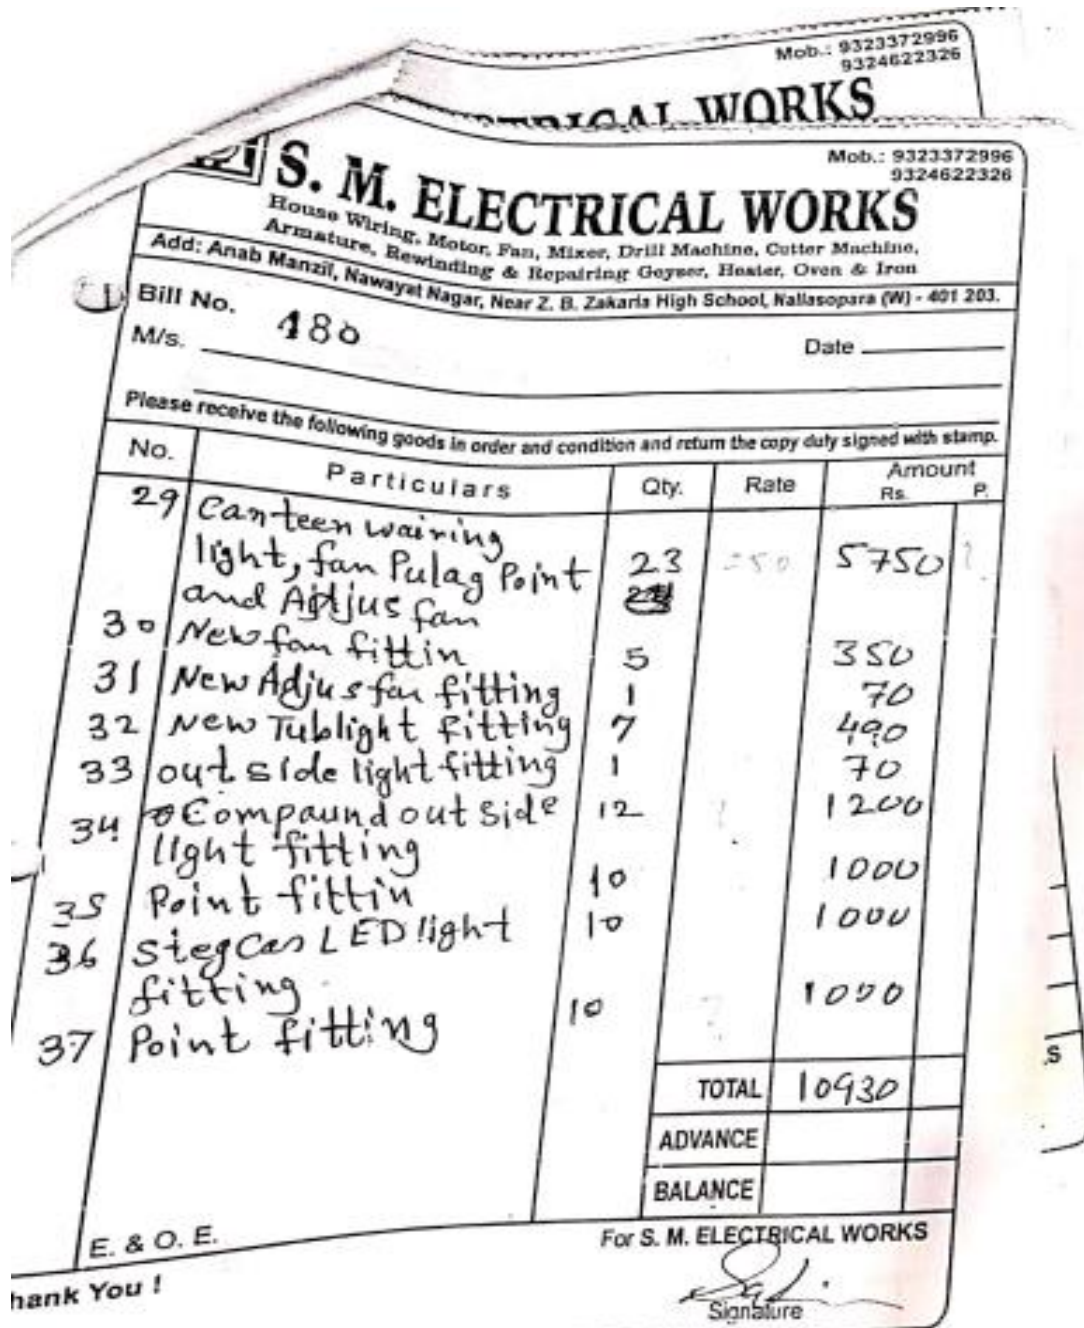 Mob.: 9323372996
9324622326
TRICAL WORKS
Mob.: 9323372996
9324622326
S. M. ELECTRICAL WORKS
House Wiring, Motor, Fan, Mixer, Drill Machine, Cutter Machine,
Armature, Rewinding & Repairing Geyser, Heater, Oven & Iron
Add: Anab Manzil, Nawayat Nagar, Near Z. B. Zakaria High School, Nallasopara (W) - 401 203.
Bill No. 480
M/s. Date
Please receive the following goods in order and condition and return the copy duly signed with stamp.
No. Particulars Qty. Rate Amount
Rs. P.
29 Canteen wairing
light, fan Pulag Point 23 5750
and Adjus fan
30 New fan fittin 5 350
31 New Adjus fan fitting 1 70
32 New Tublight fitting 7 490
33 out side light fitting 1 70
34 Compaund out side 12 1200
light fitting
35 Point fittin 10 1000
36 StegCas LED light 10 1000
fitting
37 Point fitting 10 1000
TOTAL 10930
ADVANCE
BALANCE
E. & O. E.
For S. M. ELECTRICAL WORKS
hank You !
Signature
S